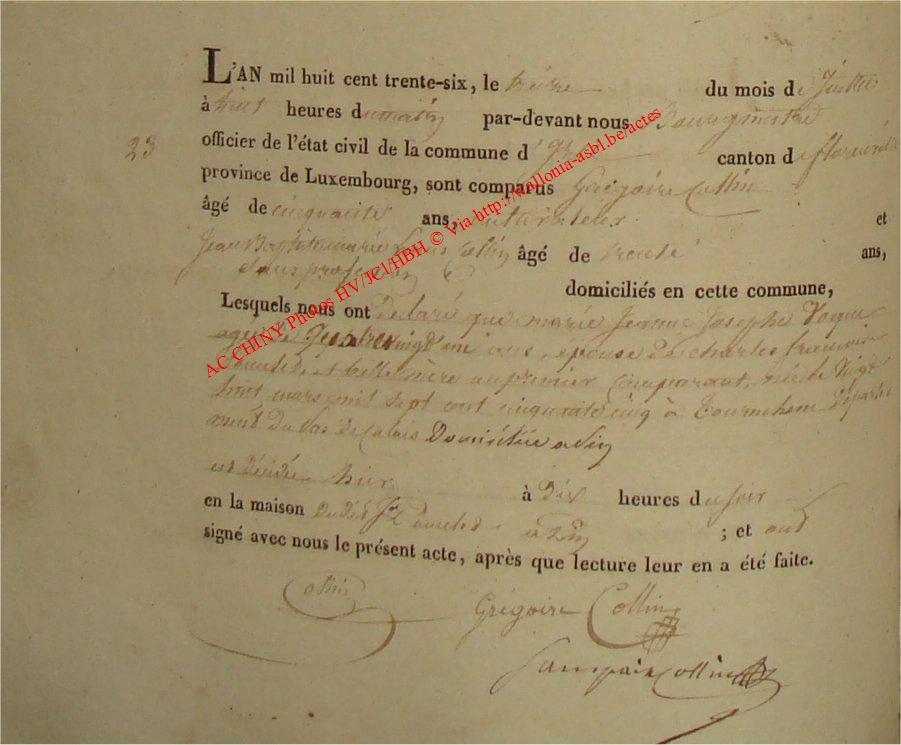 L'AN mil huit cent trente-six, le treize du mois de Juillet
à huit heures du matin par-devant nous Bourgmestre
23
officier de l'état civil de la commune d' canton de florenville
province de Luxembourg, sont comparus Grégoire Collin
âgé de cinquante ans, et
Jean Baptiste marie Louis Collin âgé de trente ans,
sans profession
domiciliés en cette commune,
Lesquels nous ont déclaré que marie Jeanne Josephe
agée de Quatre vingt un ans, épouse de charles francois
et belle mere au premier Comparant, née le vingt
huit mars mil sept cent cinquante cinq à Tournehem Départe
ment du pas de Calais Domiciliée a
est décédée hier à dix heures du soir
en la maison dudit ; et ont
signé avec nous le présent acte, après que lecture leur en a été faite.
Collin
Grégoire Collin
Collin
AC CHINY Photos HV/JCl/HBH © Via http://wallonia-asbl.be/actes